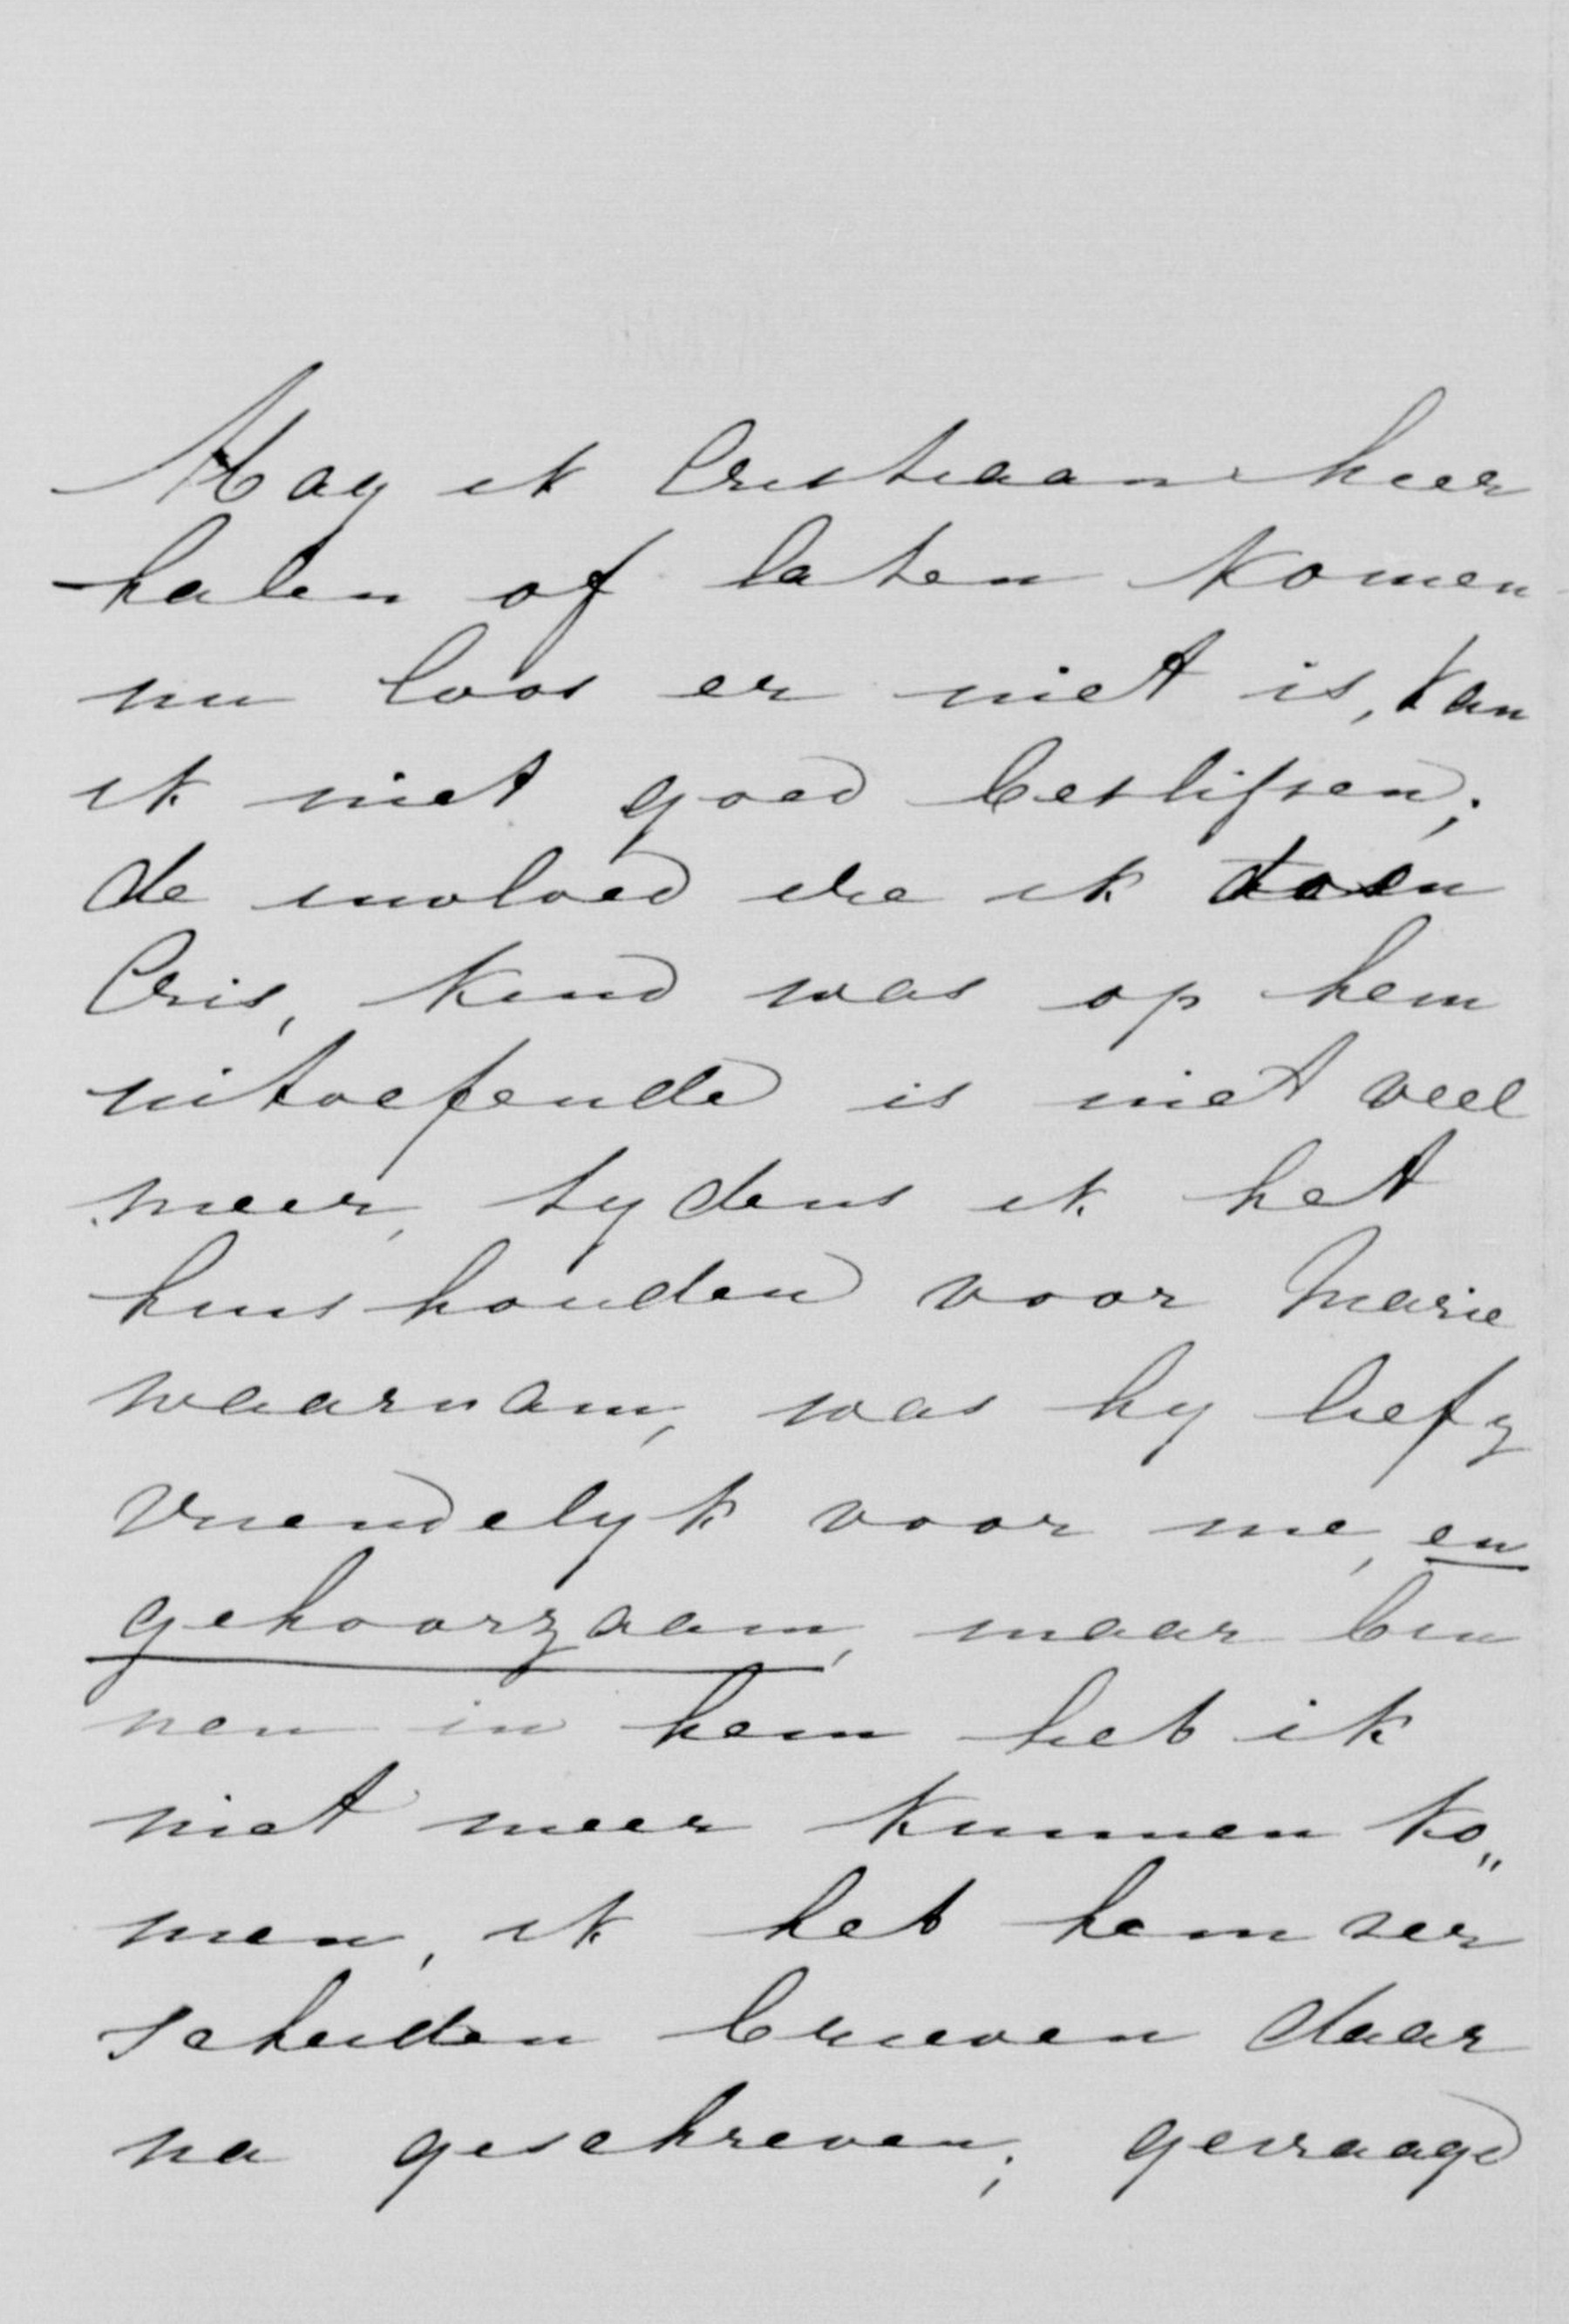 Mag ik Cristiaan hier
halen of laten komen
nu Coos er niet is, kan
ik niet goed beslissen;
de invloed die ik toen
Cris, kind was op hem
uitoefende is niet veel
meer, tydens ik het
huishouden voor Marie
waarnam, was hy lief &
vriendelyk voor me, en
gehoorzaam, maar bin
nen in hem heb ik
niet meer kunnen ko„
men, ik heb hem ver
scheiden brieven daar
na geschreven; gevraagd